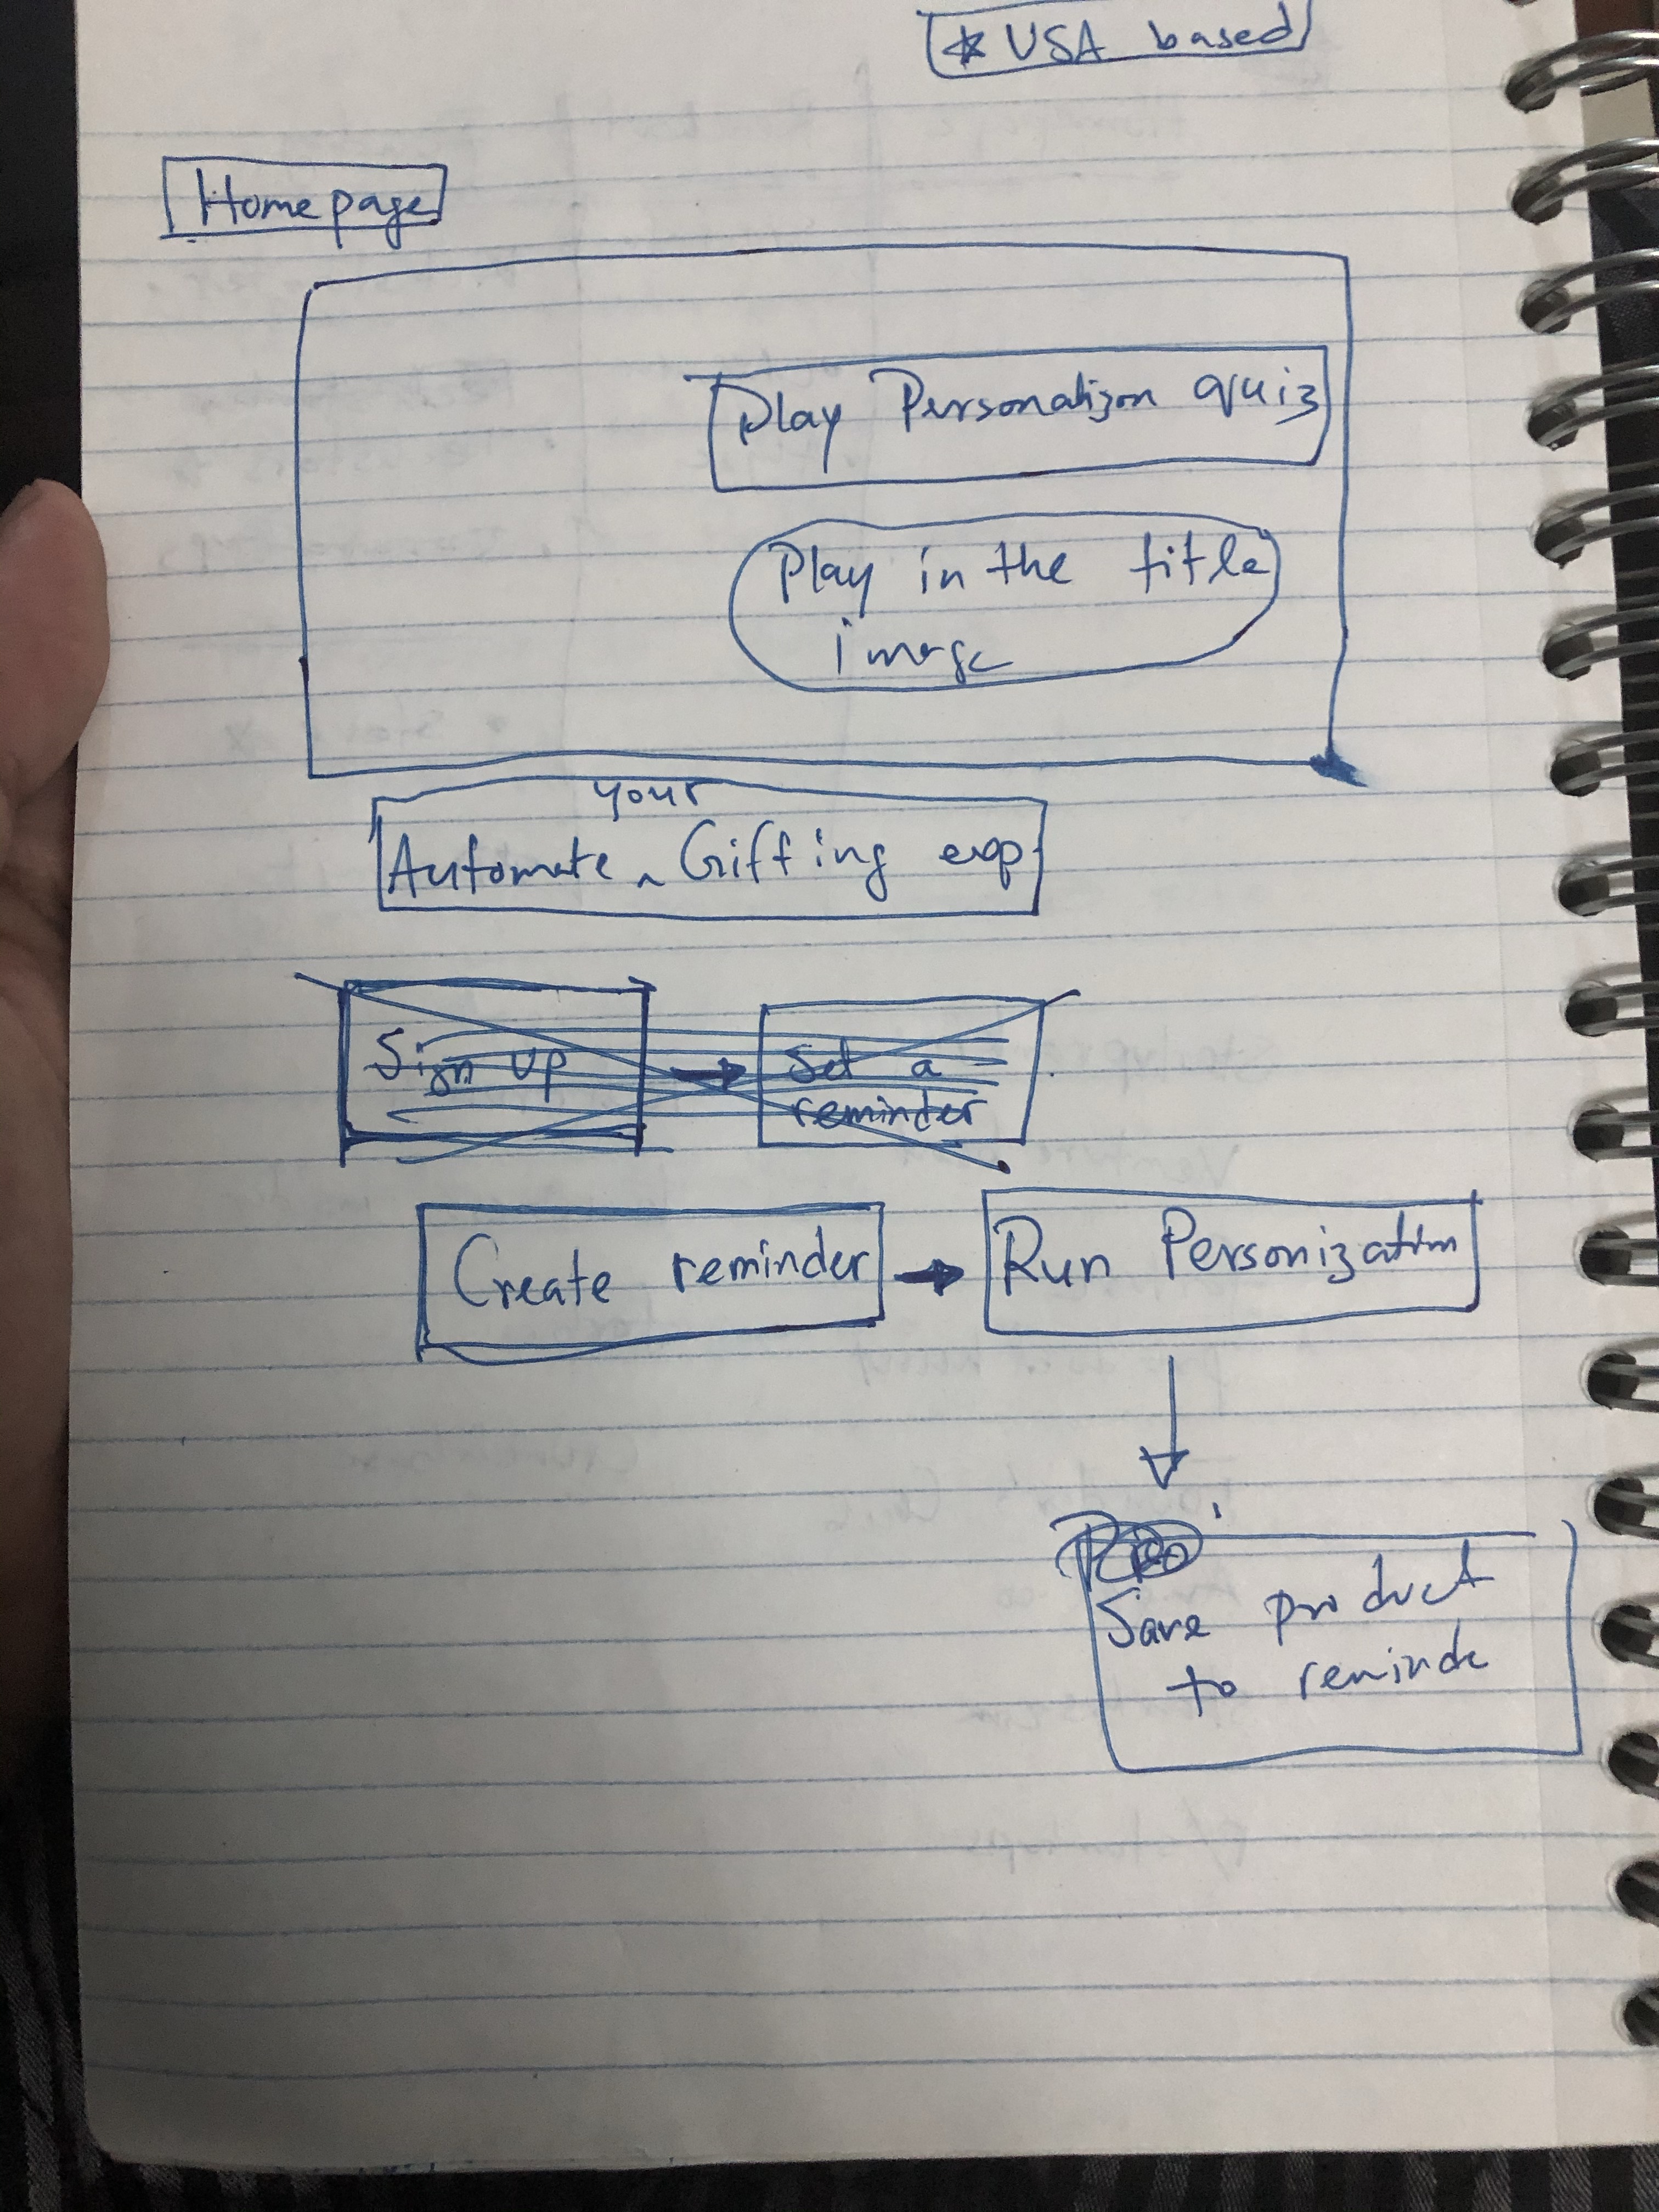 * USA based
Homepage
Play Personalizon quiz
Play in the title
image
your
Automate ^ Giffing exp.
Sign up
Set a
reminder
Create reminder
Run Personization
Save product
to reminde